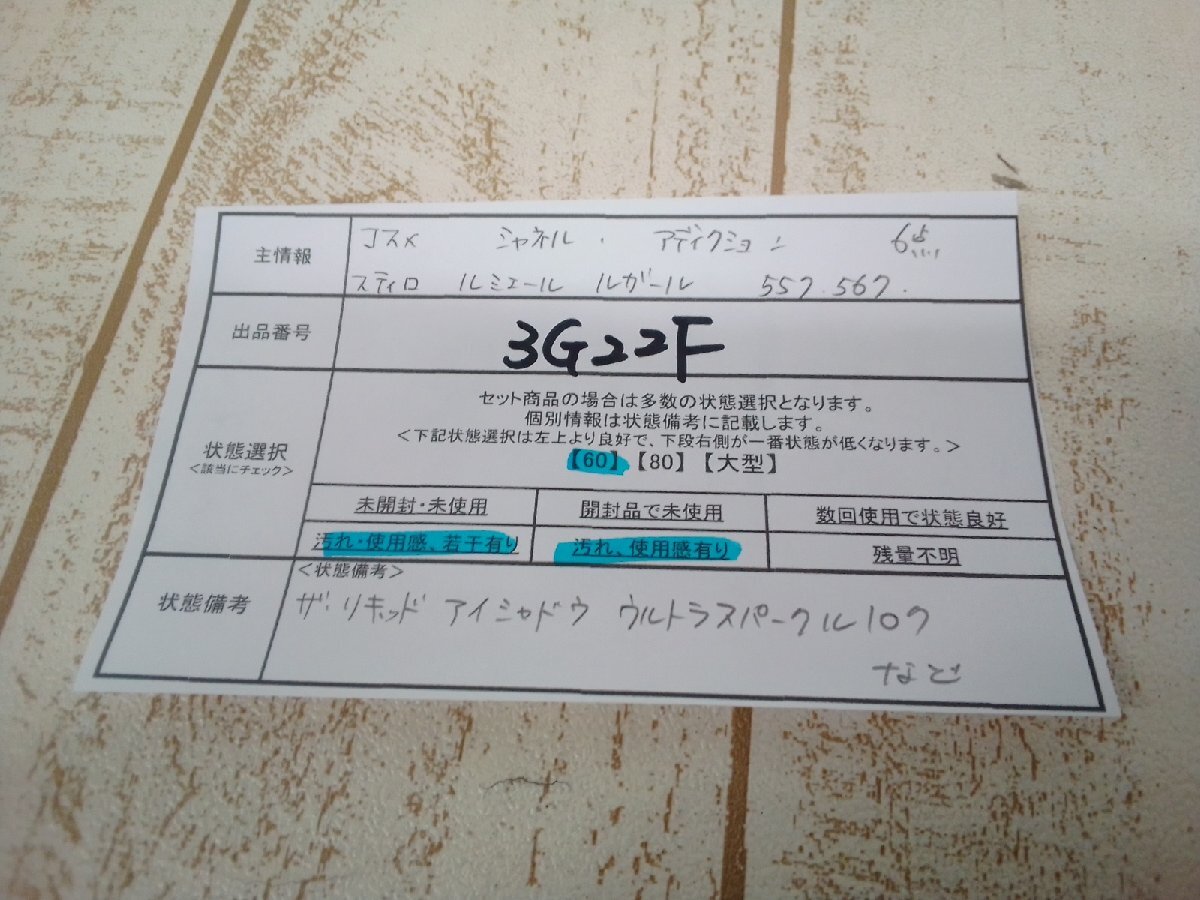 主情報
コスメ シャネル・アディクション 6点
スティロ ルミエール ルガール 557.567.
出品番号
3G22F
状態選択
<該当にチェック>
セット商品の場合は多数の状態選択となります。
個別情報は状態備考に記載します。
<下記状態選択は左上より良好で、下段右側が一番状態が低くなります。>
【60】【80】【大型】
未開封・未使用 開封品で未使用 数回使用で状態良好
汚れ・使用感、若干有り 汚れ、使用感有り 残量不明
状態備考
<状態備考>
ザ・リキッド アイシャドウ ウルトラスパークル107
など